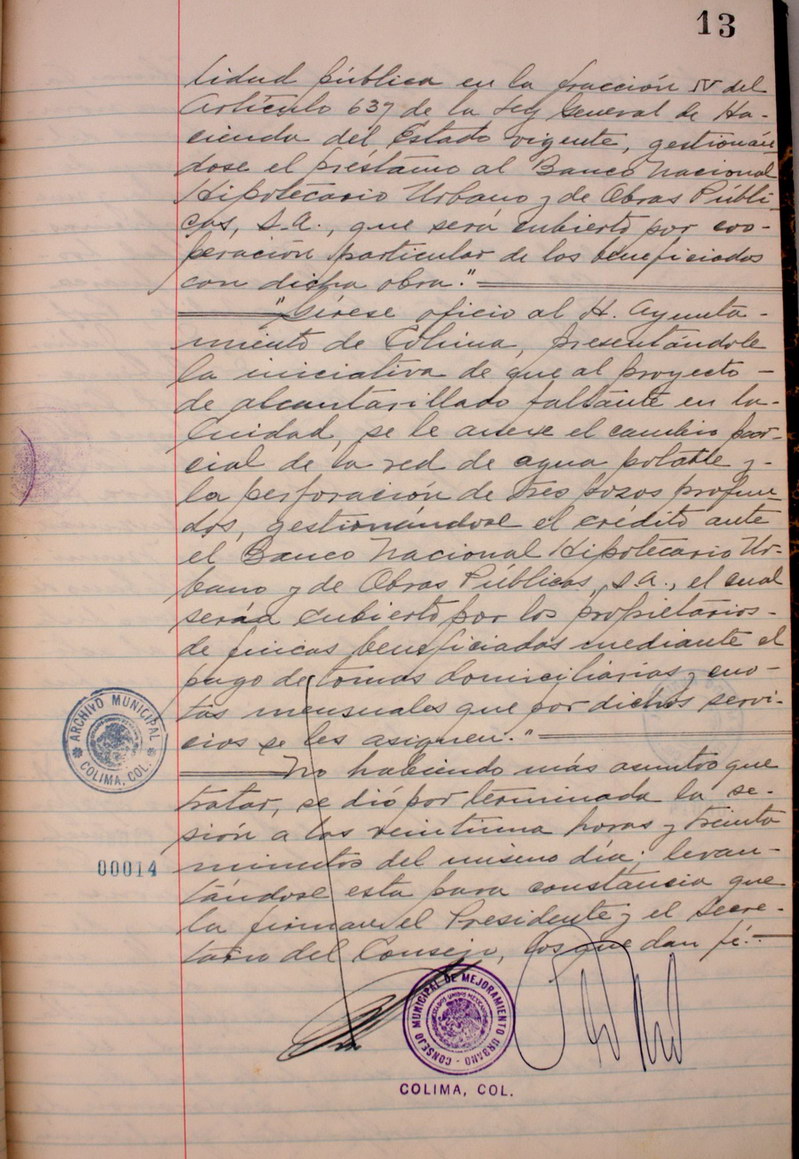 13
lidad pública en la fracción IV del
Artículo 637 de la Ley General de Ha-
cienda del Estado vigente, gestionán-
dose el préstamo al Banco Nacional
Hipotecario Urbano y de Obras Públi-
cas, S.A., que será cubierto por coo-
peración particular de los beneficiados
con dicha obra."
"Gírese oficio al H. Ayunta-
miento de Colima, presentándole
la iniciativa de que al proyecto -
de alcantarillado faltante en la-
Ciudad, se le anexe el cambio par-
cial de la red de agua potable y -
la perforación de tres pozos profun-
dos, gestionándose el crédito ante
el Banco Nacional Hipotecario Ur-
bano y de Obras Públicas, S.A., el cual
será cubierto por los propietarios-
de fincas beneficiados mediante el
pago de tomas domiciliarias y cuo-
tas mensuales que por dichos servi-
cios se les asignen."
No habiendo más asuntos que
tratar, se dió por terminada la se-
sión a las veintiuna horas y treinta
minutos del mismo día; levan-
tándose esta para constancia que
la firman el Presidente y el Secre-
tario del Consejo, los que dan fé.-
ARCHIVO MUNICIPAL
COLIMA, COL.
00014
CONSEJO MUNICIPAL DE MEJORAMIENTO URBANO
ESTADOS UNIDOS MEXICANOS
COLIMA, COL.